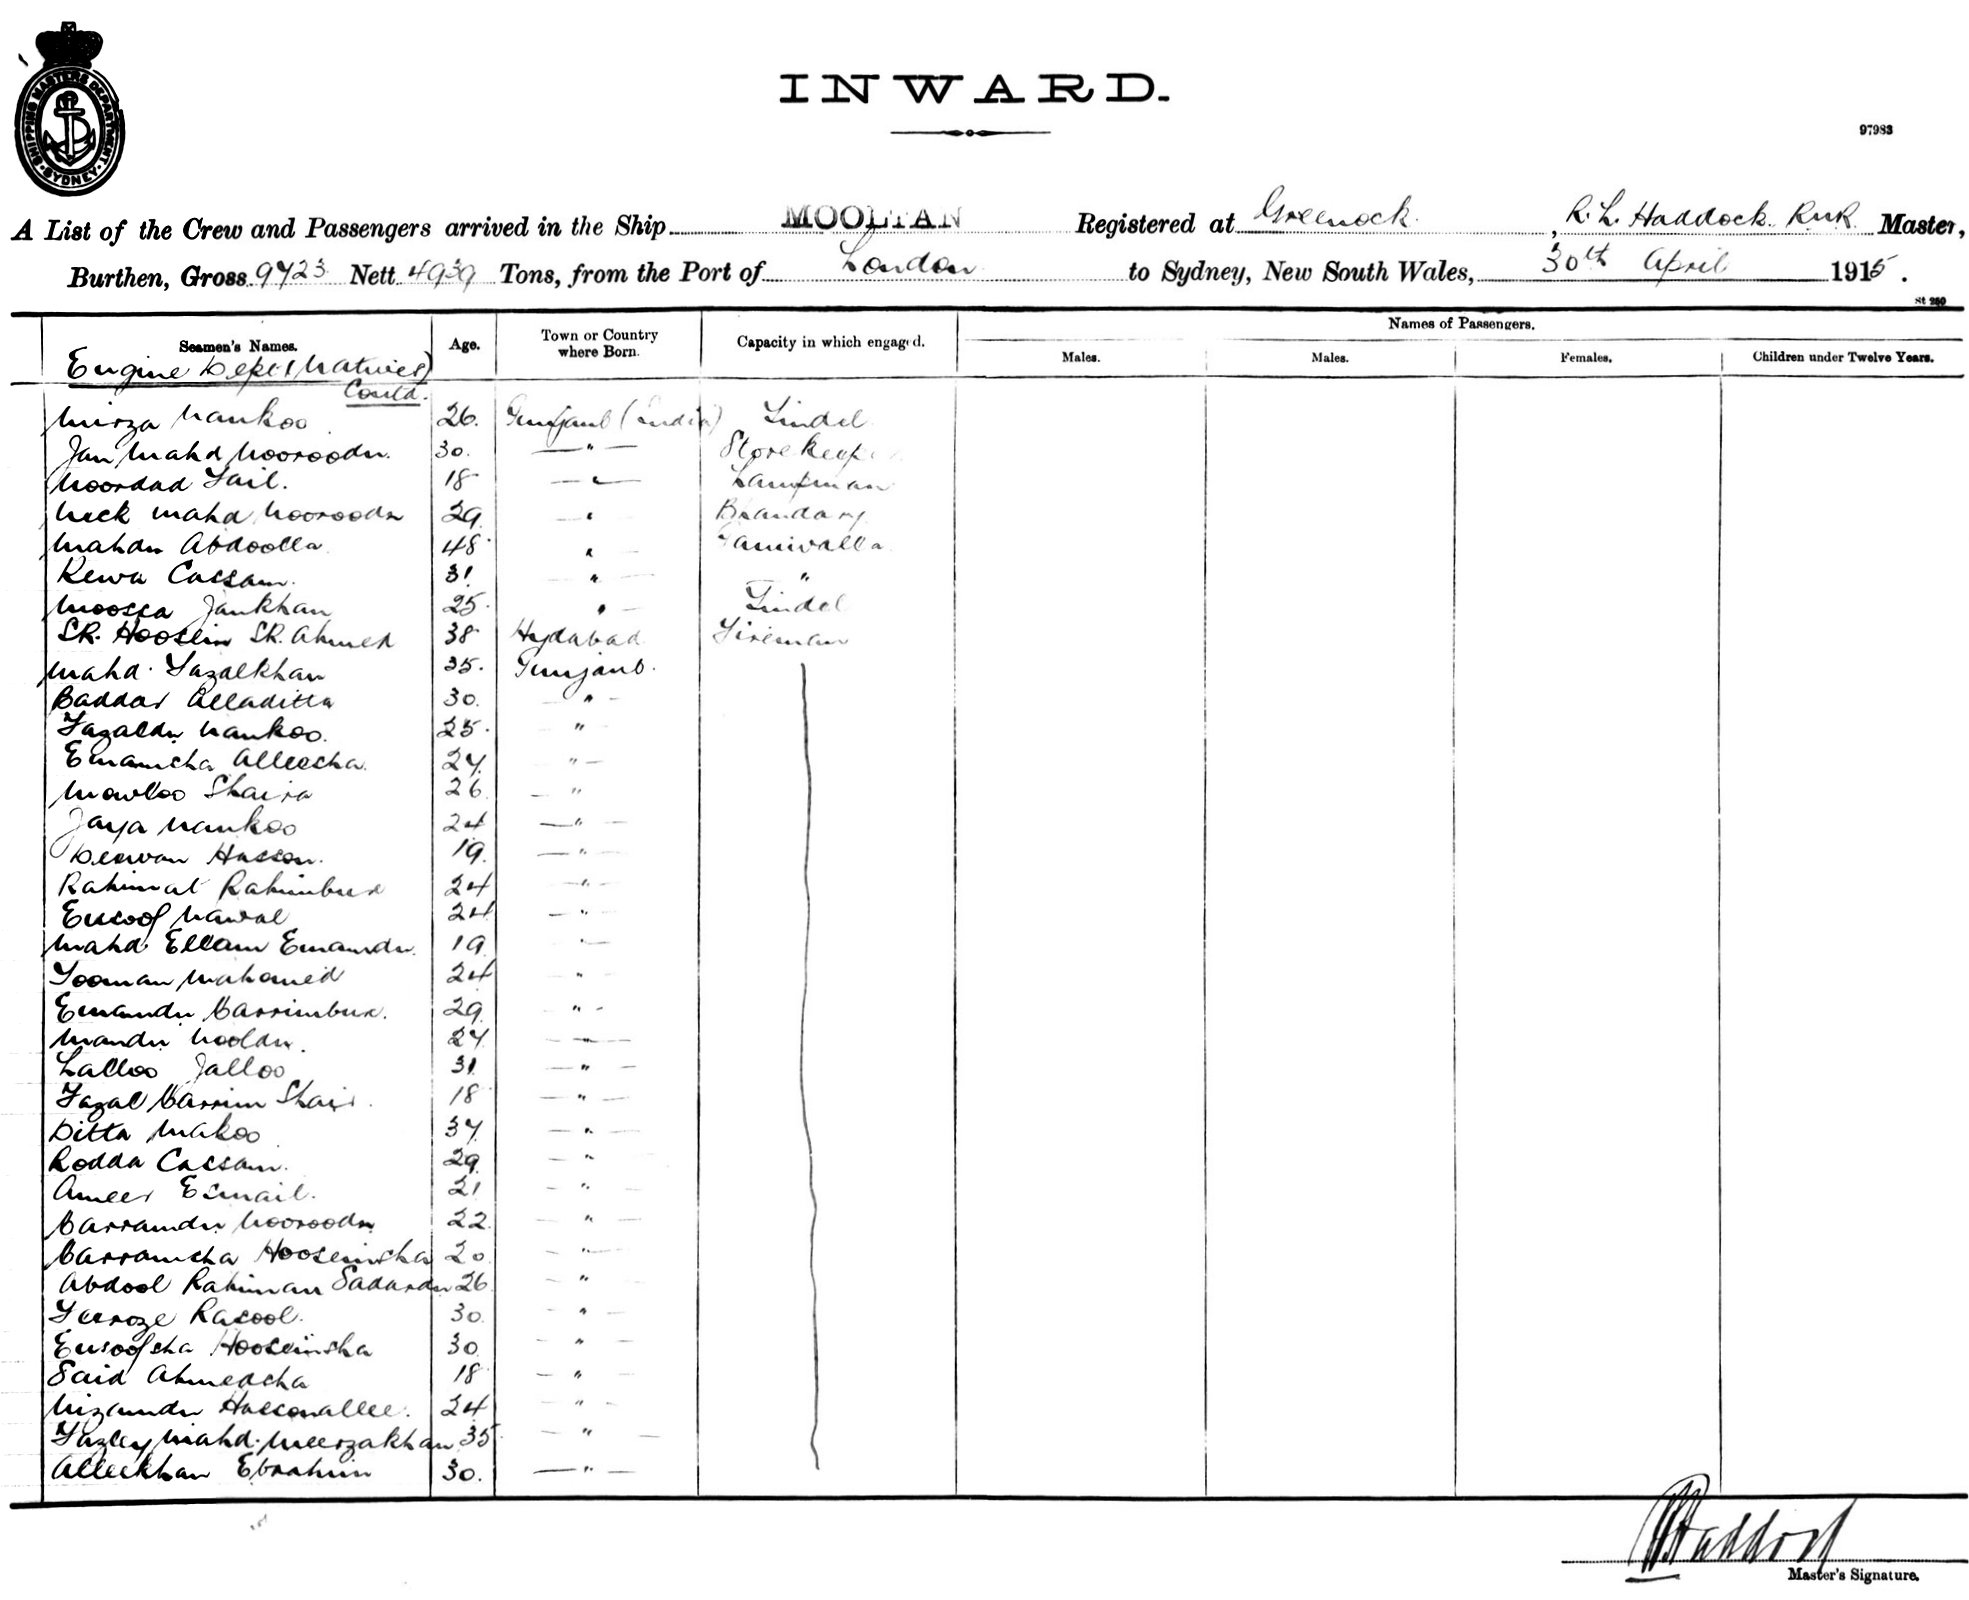 SHIPPING MASTERS DEPARTMENT. SYDNEY.
INWARD.
97983
A List of the Crew and Passengers arrived in the Ship MOOLTAN Registered at Greenock, R. L. Haddock. R.N.R. Master,
Burthen, Gross 9723 Nett 4939 Tons, from the Port of London to Sydney, New South Wales, 30th April 1915.
St 260
Seamen's Names. Age. Town or Country where Born. Capacity in which engaged. Names of Passengers.
Males. Males. Females. Children under Twelve Years.
Engine Dept (Natives)
Contd.
Mirza Nankoo 26. Punjaub (India) Tindel
Jan Mahd Nooroodn. 30. " Storekeeper
Noordad Fail. 18 " Lampman
Neck Mahd Nooroodn 29 " Bhandary
Mahdn Abdoolla 48 " Paniwalla
Rewa Cassam. 31 " "
Moossa Jankhan 25. " Tindel
SK. Hoosein SK. Ahmed 38 Hydabad Fireman
Mahd. Fazalkhan 35. Punjaub.
Baddar Alladitta 30. "
Fazaldn Nankoo. 25. "
Emamsha Alleesha. 27. "
Mowloo Shaira 26 "
Jaya Nankoo 24 "
Dewan Hasson. 19. "
Rahimat Rahimbux 24 "
Eusoof Nawal 24 "
Mahd Ellam Emamdn. 19 "
Fooman Mahomed 24 "
Emamdn Karrimbux. 29. "
Mamdn Nooldn. 27 "
Lalloo Jalloo 31 "
Fazal Karrim Shair. 18 "
Ditta Makoo 37. "
Rodda Cassam. 29 "
Ameer Esmail. 21 "
Karramdn Nooroodn 22. "
Karramsha Hooseinsha 20 "
Abdool Rahiman Sadardn 26 "
Feeroze Rasool. 30. "
Eusoofsha Hooseinsha 30 "
Said Ahmedsha 18 "
Nizamdn Hassonallee. 24 "
Fazley Mahd. Meerzakhan 35 "
Alleekhan Ebrahim 30. "
Haddock
Master's Signature.